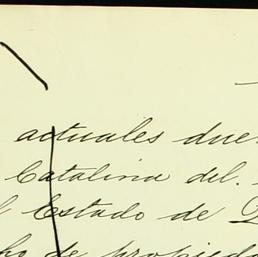 actuales due
Catalina del.
l Estado de
ho de propieda